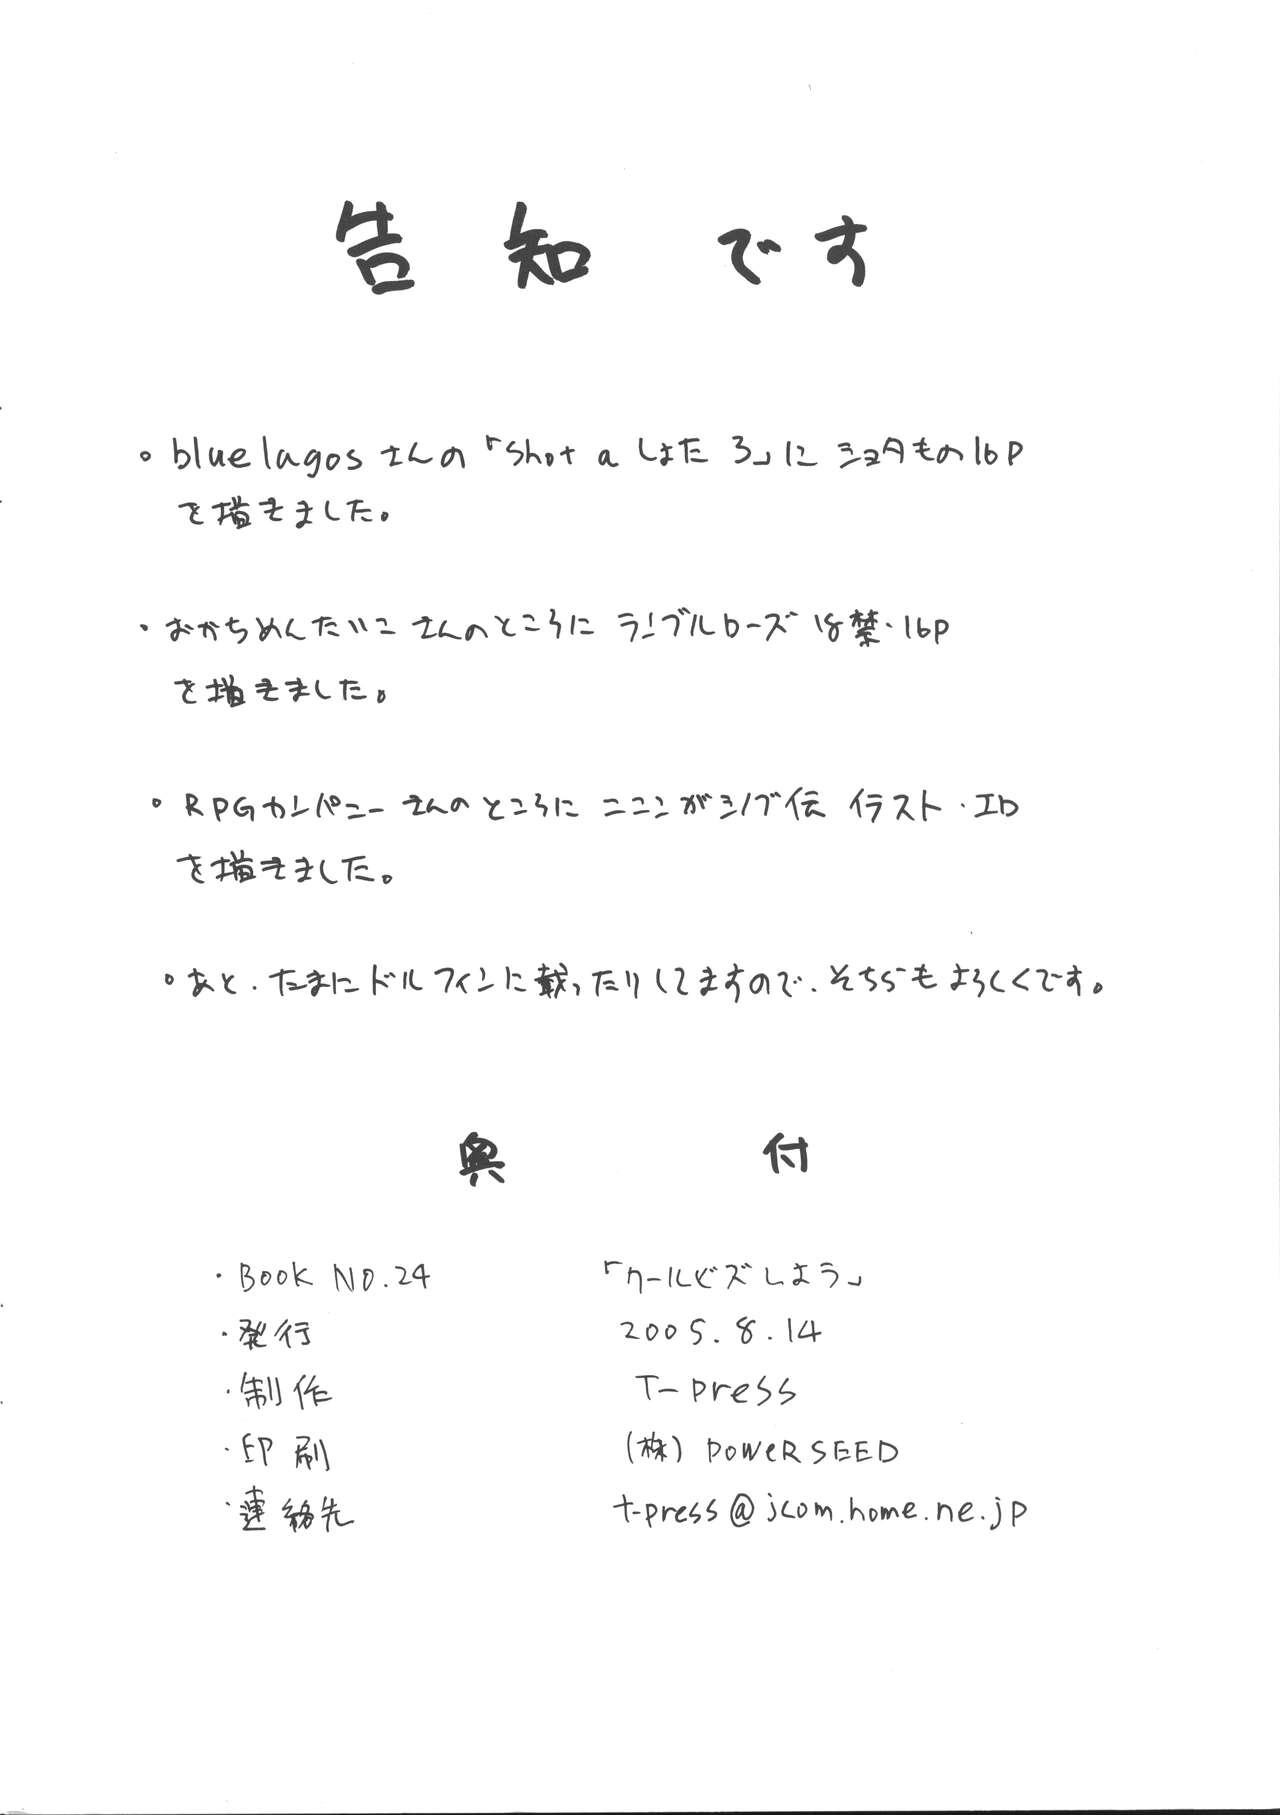 告知です
。bluelagosさんの「Shot a しょた 3」に ショタもの16P
を描きました。
・おかちめんたいこ さんのところに ランブルローズ 18禁・16P
を描きました。
。RPGカンパニーさんのところに ニニンがシノブ伝 イラスト・エロ
を描きました。
。あと、たまにドルフィンに載ったりしてますので、そちらもよろしくです。
奥付
・BOOK NO.24 「クールビズしよう」
・発行 2005.8.14
・制作 T-press
・印刷 (株) POWER SEED
・連絡先 t-press@jcom.home.ne.jp